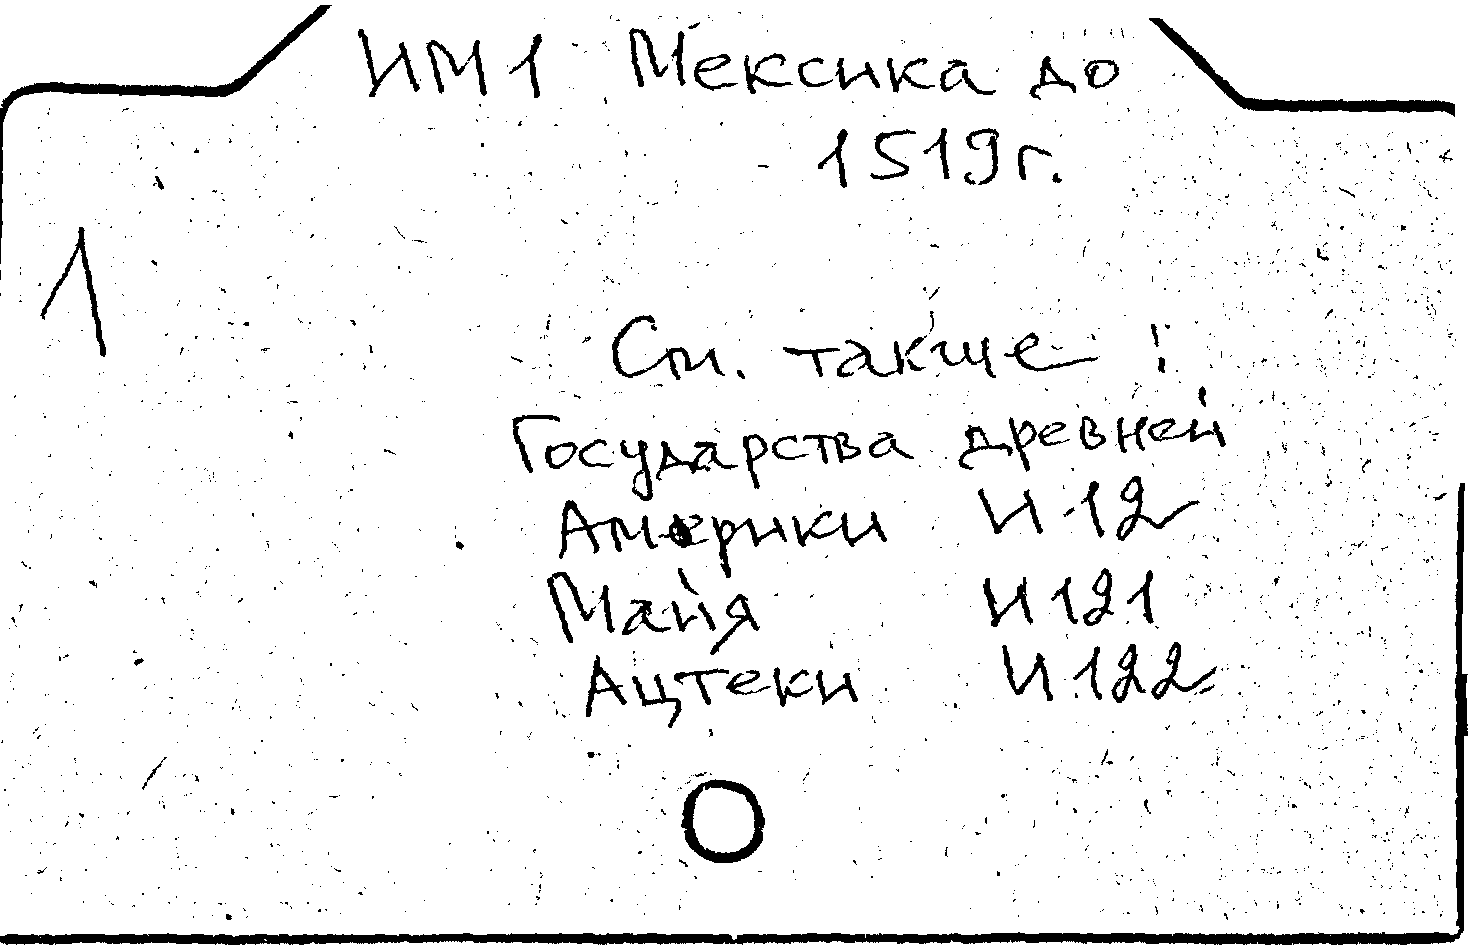 ИМ1 Мексика до
1519г.
1
См. также :
Государства древней
Америки И 12
Майя И 121
Ацтеки И 122